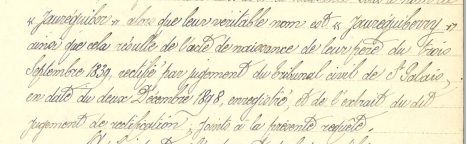 « Jaureguiber » alors que leur véritable nom est « Jaureguiberry »
ainsi que cela résulte de l'acte de naissance de leur père du trois
Septembre 1839, rectifié par jugement du tribunal civil de St Palais,
en date du deux Décembre 1898, enregistré, et de l'extrait du dit
jugement de rectification, joints à la présente requête.